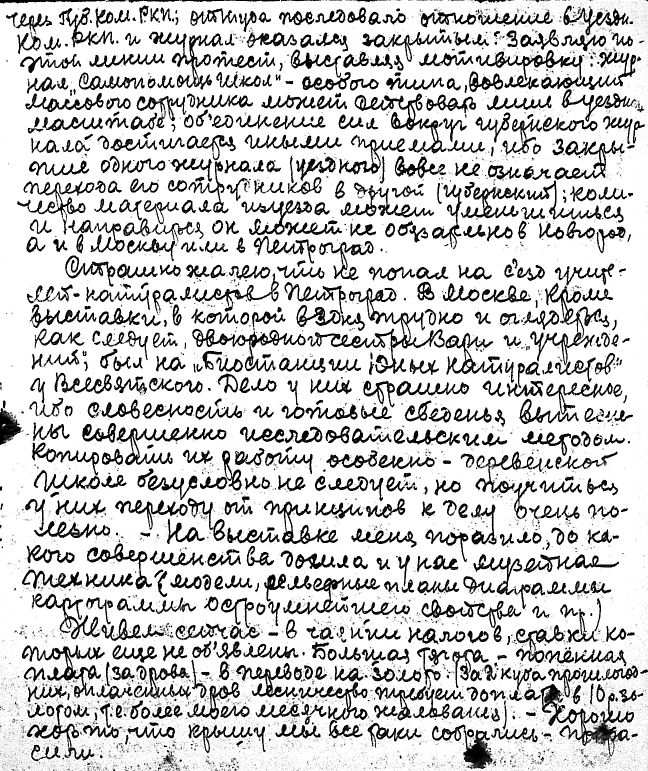 через Губ. Ком. РКП.; оттуда последовало отношение в Уездн.
Ком. РКП. и журнал оказался закрытым. Заявляю по
этой линии протест, выставляя мотивировку: жур-
нал „Самопомощь Школ" - особого типа, вовлекающий
массового сотрудника может действовать лишь в уездном
масштабе; об'единение сил вокруг губернского жур
нала достигается иными приемами, ибо закры-
тие одного журнала (уездного) вовсе не означает
перехода его сотрудников в другой (губернский); коли-
чество материала из уезда может уменьшиться
и направиться он может не обязательно в Новгород,
а и в Москву или в Петроград.
Страшно жалею, что не попал на с'езд учите-
лей-натуралистов в Петроград. В Москве, кроме
выставки, в которой в 3 дня трудно и оглядеться,
как следует, двоюродной сестры Вари и учрежде-
ний; был на „Биостанции Юных натуралистов"
у Всесвятского. Дело у них страшно интересное,
ибо словесность и готовые сведенья вытесне-
ны совершенно исследовательским методом.
Копировать их работу особенно - деревенской
школе безусловно не следует, но поучиться
у них переходу от принципов к делу очень по-
лезно. - На выставке меня поразило, до ка-
кого совершенства дошла и у нас музейная
техника (модели, рельефные планы диаграммы
картограммы остроумнейшего свойства и пр.)
Живем сейчас - в чаянии налогов, ставки ко-
торых еще не об'явлены. Большая тягота - попенная
плата (за дрова) - в переводе на золото. (За 2 куба прошлогод-
них, оплаченных дров лесничество требует доплаты в 10 р. зо-
лотом, т.е. более моего месячного жалованья). - Хорошо
хоть то, что крышу мы все таки собрались - покра-
сили.